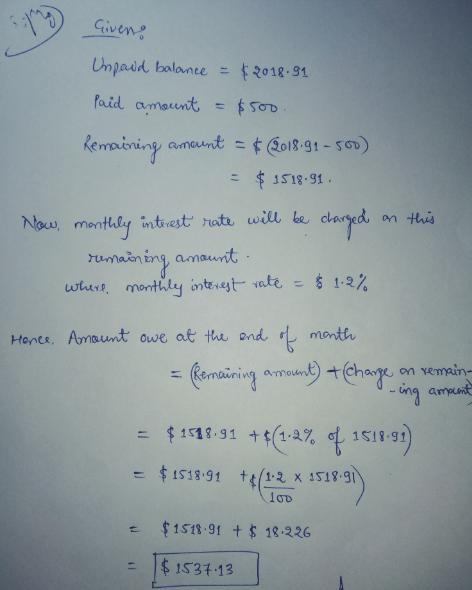 Given:
Unpaid balance = $ 2018.91
Paid amount = $500.
Remaining amount = $ (2018.91 - 500)
= $ 1518.91.
Now, monthly interest rate will be charged on this
remaining amount.
where, monthly interest rate = $ 1.2%
Hence, Amount owe at the end of month
= (Remaining amount) + (Charge on remain-
-ing amount)
= $ 1518.91 + $(1.2% of 1518.91)
= $ 1518.91 + $(1.2/100 x 1518.91)
= $ 1518.91 + $ 18.226
= $ 1537.13